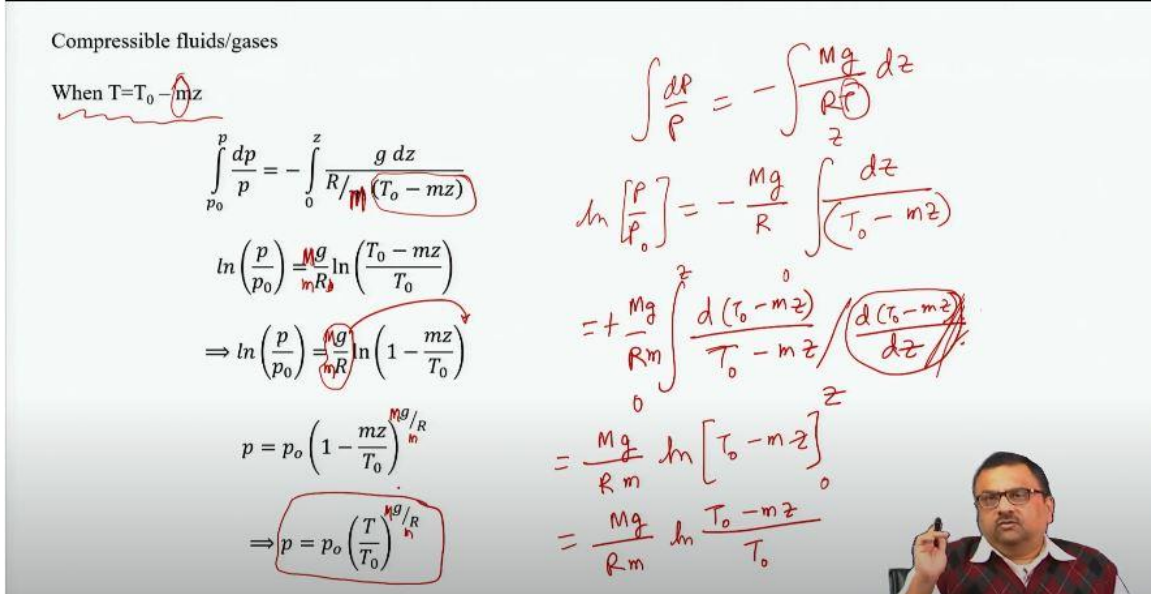 Compressible fluids/gases
When T=T₀ – mz
∫_{p₀}^{p} dp/p = − ∫_{0}^{z} g dz / (R/M (Tₒ − mz))
ln(p/p₀) = Mg/mR ln((T₀ − mz)/T₀)
⇒ ln(p/p₀) = Mg/mR ln(1 − mz/T₀)
p = pₒ (1 − mz/T₀)^{Mg/Rm}
⇒ p = pₒ (T/T₀)^{Mg/Rm}
∫ dP/P = − ∫ Mg/RT dz
z
ln [P/P₀] = − Mg/R ∫_{0}^{z} dz/(T₀ − mz)
= + Mg/Rm ∫_{0}^{z} d(T₀ − mz)/(T₀ − mz) / d(T₀ − mz)/dz
= Mg/Rm ln [T₀ − mz]_{0}^{z}
= Mg/Rm ln (T₀ − mz)/T₀